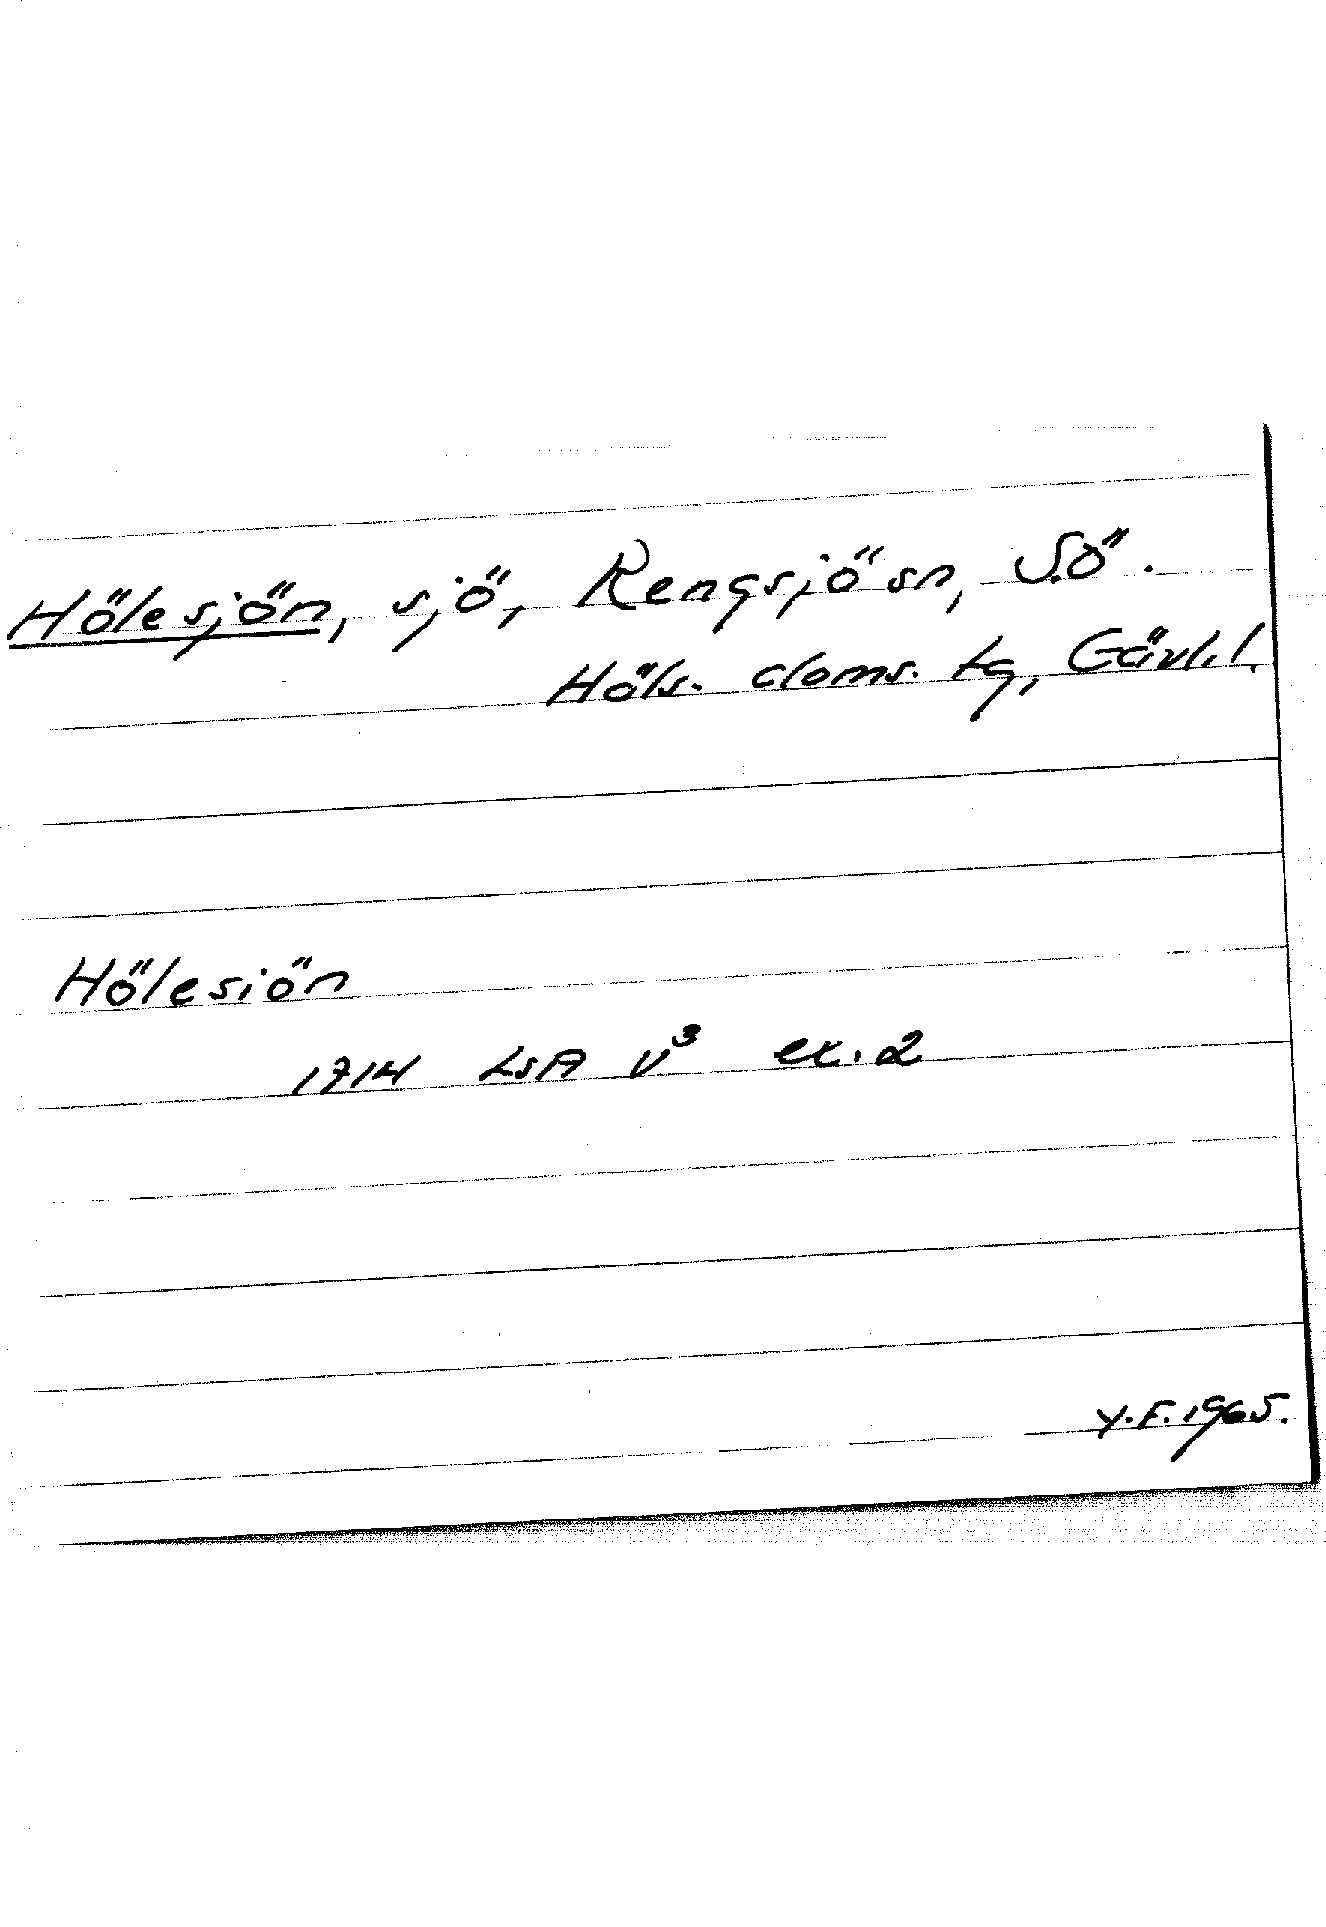 Hölesjön, sjö, Rengsjösn, S.Ö.
Häls. doms. tg, Gävl.l.
Hölesiön
1714 LSA V³ ex. 2
Y.F. 1965.